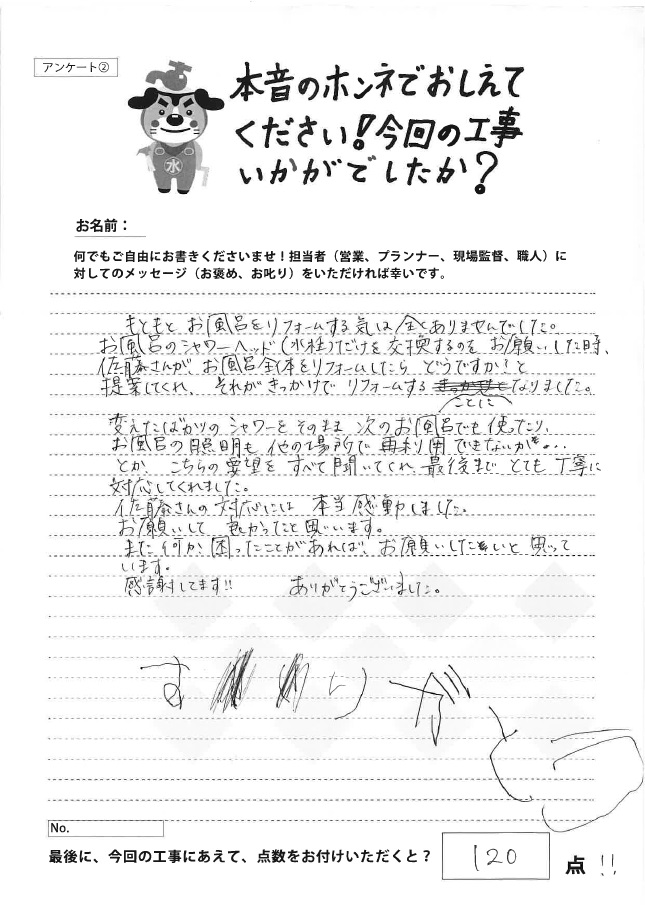 アンケート②
本音のホンネでおしえて
ください!今回の工事
いかがでしたか?
水
お名前:
何でもご自由にお書きくださいませ!担当者(営業、プランナー、現場監督、職人)に
対してのメッセージ(お褒め、お叱り)をいただければ幸いです。
もともと お風呂をリフォームする気は全くありませんでした。
お風呂のシャワーヘッド(水栓)だけを交換するのを お願いした時、
佐藤さんが、お風呂全体をリフォームしたら どうですか?と
提案してくれ、それがきっかけで リフォームすることになりました。
変えたばかりの シャワーを そのまま 次のお風呂でも使ったり、
お風呂の照明も 他の場所で 再利用できないか...
とか こちらの要望を すべて聞いてくれ 最後まで とても 丁寧に
対応してくれました。
佐藤さんの対応には 本当感動しました。
お願いして 良かったと思います。
また何か 困ったことがあれば、お願いしたいと 思って
います。
感謝してます!! ありがとうございました。
No.
最後に、今回の工事にあえて、点数をお付けいただくと? 120 点 !!